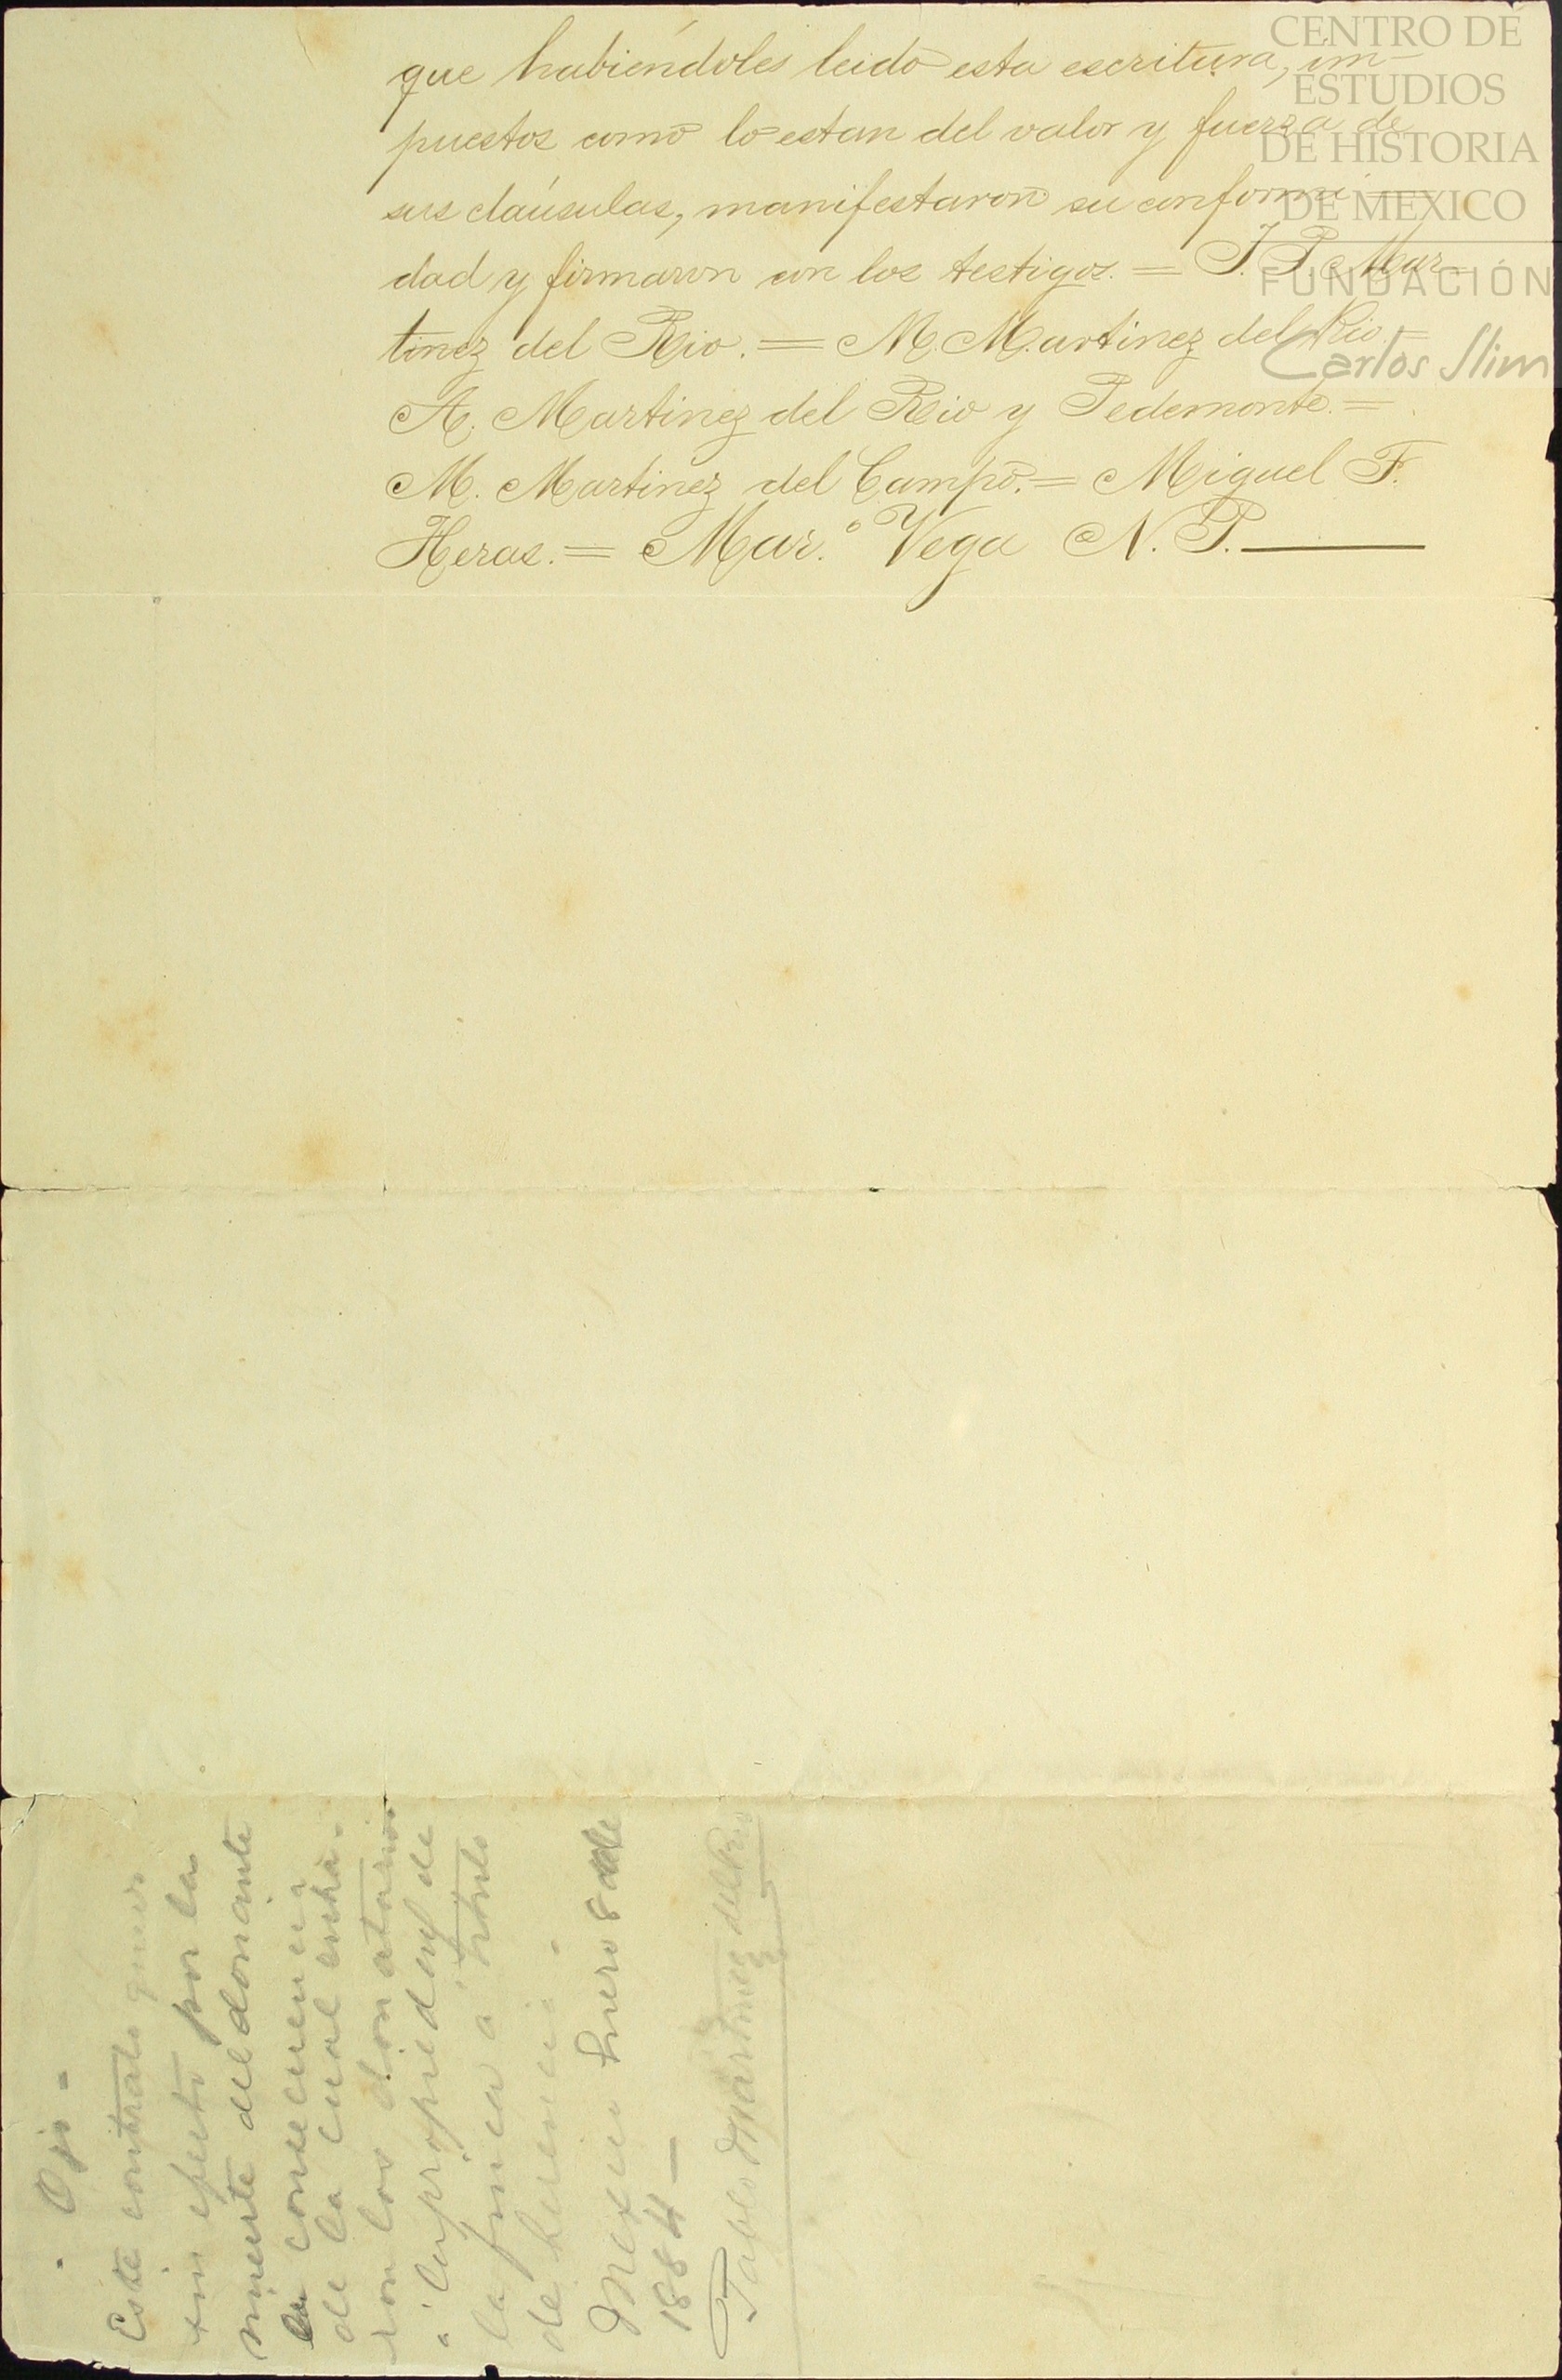 que habiéndoles leido esta escritura, im-
puestos como lo estan del valor y fuerza de
sus claúsulas, manifestaron su conformi-
dad y firmaron con los testigos. = J. P. Mar-
tinez del Rio. = M. Martinez del Rio. =
A. Martinez del Rio y Pedemonte. =
M. Martinez del Campo. = Miguel F.
Heras. = Mar.º Vega N. P.
CENTRO DE
ESTUDIOS
DE HISTORIA
DE MEXICO
FUNDACIÓN
Carlos Slim
Ojo =
Este contrato quedó
sin efecto por la
muerte del donante
a consecuencia
de la cual entra-
ron los donatarios
a la propiedad de
la finca a título
de herencia.
Mexico Enero 8 de
1884 —
Pablo Martinez del Rio